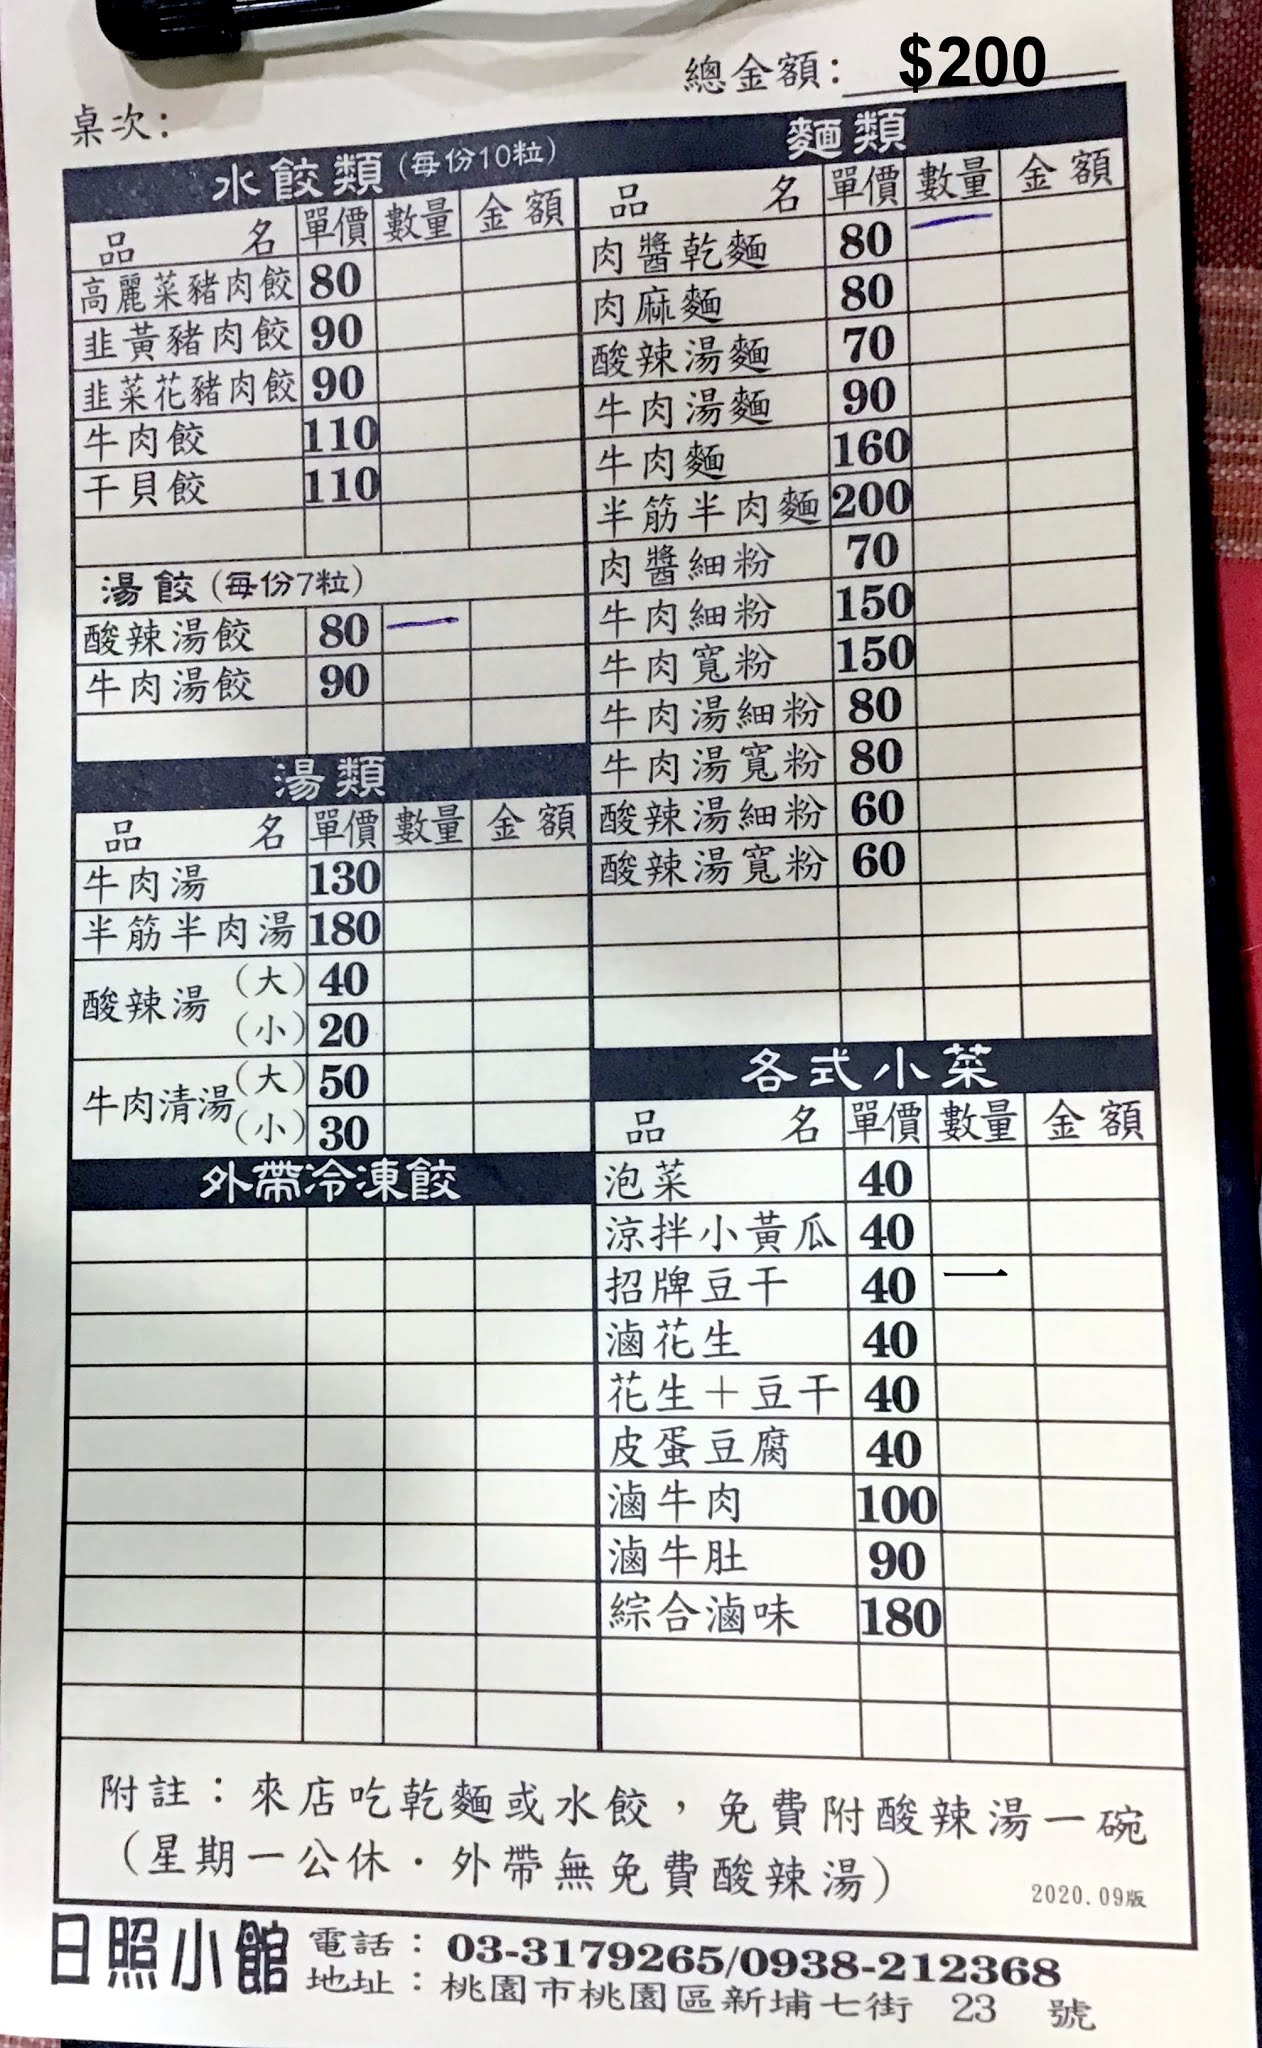 總金額: $200
桌次:
水餃類(每份10粒)
品 名 單價 數量 金額
高麗菜豬肉餃 80
韭黃豬肉餃 90
韭菜花豬肉餃 90
牛肉餃 110
干貝餃 110
湯餃(每份7粒)
酸辣湯餃 80 一
牛肉湯餃 90
湯類
品 名 單價 數量 金額
牛肉湯 130
半筋半肉湯 180
酸辣湯 (大) 40
(小) 20
牛肉清湯 (大) 50
(小) 30
外帶冷凍餃
麵類
品 名 單價 數量 金額
肉醬乾麵 80 一
肉麻麵 80
酸辣湯麵 70
牛肉湯麵 90
牛肉麵 160
半筋半肉麵 200
肉醬細粉 70
牛肉細粉 150
牛肉寬粉 150
牛肉湯細粉 80
牛肉湯寬粉 80
酸辣湯細粉 60
酸辣湯寬粉 60
各式小菜
品 名 單價 數量 金額
泡菜 40
涼拌小黃瓜 40
招牌豆干 40 一
滷花生 40
花生+豆干 40
皮蛋豆腐 40
滷牛肉 100
滷牛肚 90
綜合滷味 180
附註：來店吃乾麵或水餃，免費附酸辣湯一碗
(星期一公休·外帶無免費酸辣湯)
2020.09版
日照小館 電話：03-3179265/0938-212368
地址：桃園市桃園區新埔七街 23 號